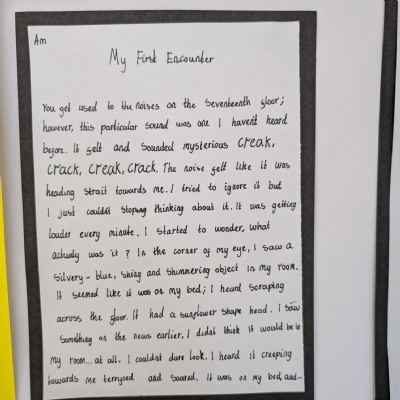 Am
My First Encounter
You get used to the noises on the seventeenth floor;
however, this particular sound was one I havent heard
before. It felt and sounded mysterious creak,
crack, creak, crack. The noise felt like it was
heading strait towards me. I tried to ignore it but
I just couldnt stoping thinking about it. It was getting
louder every minute. I started to wonder, what
actualy was it? In the corner of my eye, I saw a
silvery-blue, shing and shimmering object in my room.
It seemed like it was on my bed; I heard scraping
across the floor. It had a sunflower shape head. I saw
something on the news earlier, I didnt think it would be in
my room... at all. I couldnt dare look. I heard it creeping
towards me terryfed and scared. It was on my bed, and...